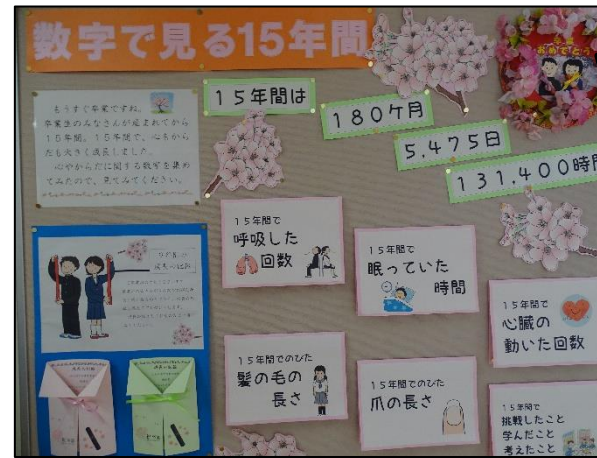 数字で見る15年間
卒業
おめでとう
もうすぐ卒業ですね。
卒業生のみなさんが産まれてから
15年間。15年間で、心もから
だも大きく成長しました。
心やからだに関する数字を集め
てみたので、見てみてください。
15年間は
180ケ月
5,475日
131,400時間
15年間で
呼吸した
回数
15年間で
眠っていた
時間
15年間で
心臓の
動いた回数
15年間でのびた
髪の毛の
長さ
15年間でのびた
爪の長さ
15年間で
挑戦したこと
学んだこと
考えたこと